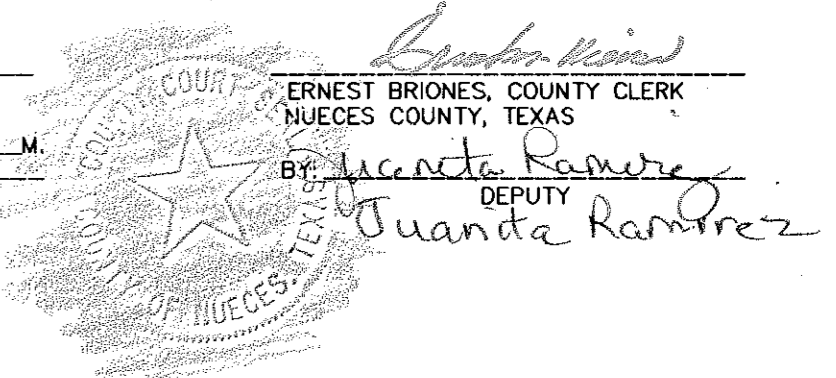 ERNEST BRIONES, COUNTY CLERK
NUECES COUNTY, TEXAS
M.
BY: Juanita Ramirez
DEPUTY
Juanita Ramirez
COUNTY COURT
COUNTY OF NUECES, TEXAS